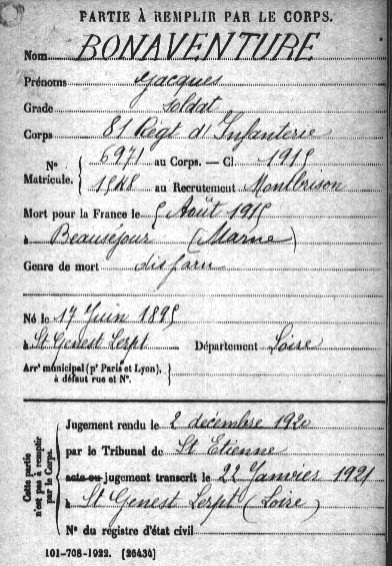 PARTIE À REMPLIR PAR LE CORPS.
Nom BONAVENTURE
Prénoms Jacques
Grade Soldat
Corps 81 Régt d'Infanterie
N° 6971 au Corps. — Cl. 1915
Matricule. 1548 au Recrutement Montbrison
Mort pour la France le 5 Août 1915
à Beauséjour (Marne)
Genre de mort disparu
Né le 17 Juin 1895
à St Genest Lerpt Département Loire
Arrt municipal (pr Paris et Lyon),
à défaut rue et N°.
Cette partie
n'est pas à remplir
par le Corps.
Jugement rendu le 2 décembre 1920
par le Tribunal de St Etienne
acte ou jugement transcrit le 22 Janvier 1921
à St Genest Lerpt (Loire)
N° du registre d'état civil
101-708-1922. [26434]